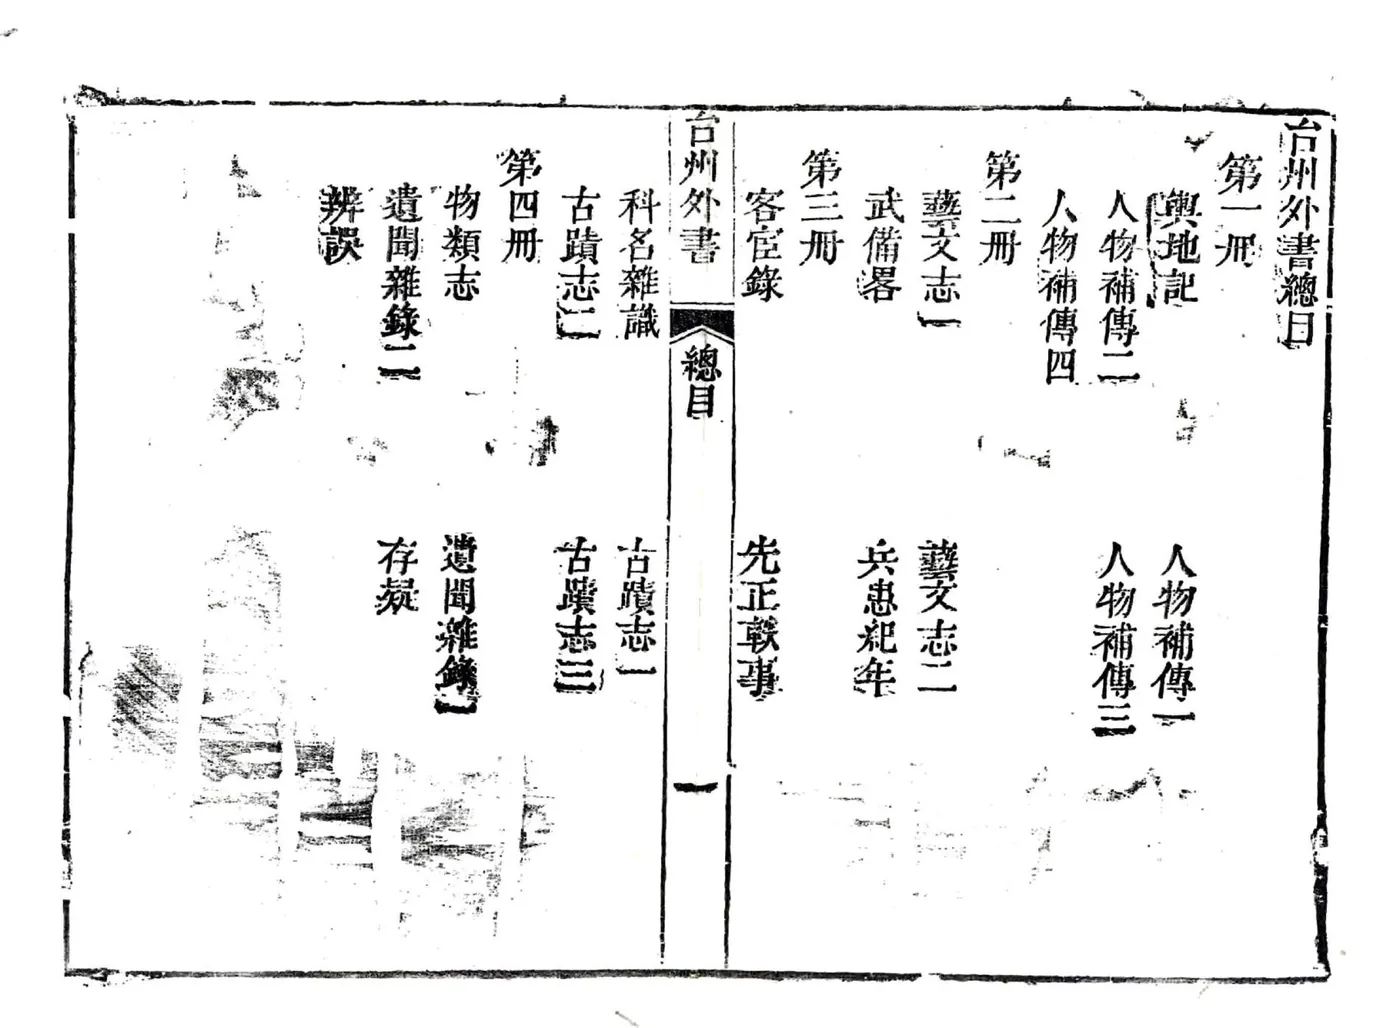 台州外書總目
第一冊
輿地記
人物補傳一
人物補傳二
人物補傳三
人物補傳四
第二冊
藝文志一
藝文志二
武備畧
兵患紀年
第三冊
客宦錄
先正軼事
台州外書
總目
一
科名雜識
古蹟志一
古蹟志二
古蹟志三
第四冊
物類志
遺聞雜錄一
遺聞雜錄二
存疑
辨誤